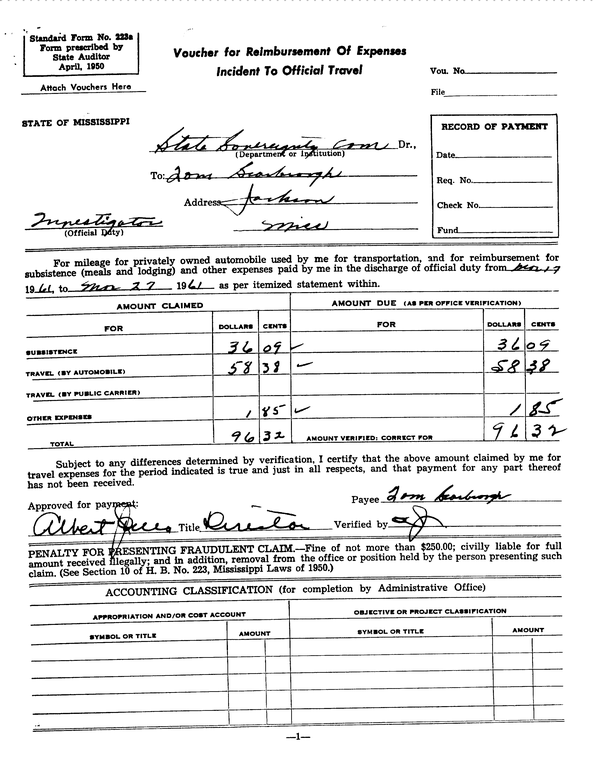 Standard Form No. 223a
Form prescribed by
State Auditor
April, 1950
Attach Vouchers Here
Voucher for Reimbursement Of Expenses
Incident To Official Travel
Vou. No.
File
STATE OF MISSISSIPPI
State Sovereignty Com Dr.,
(Department or Institution)
To: Tom Scarbrough
Address Jackson
Miss
Investigator
(Official Duty)
RECORD OF PAYMENT
Date
Req. No.
Check No.
Fund
For mileage for privately owned automobile used by me for transportation, and for reimbursement for
subsistence (meals and lodging) and other expenses paid by me in the discharge of official duty from
1961, to Mar 27 1961 as per itemized statement within.
AMOUNT CLAIMED AMOUNT DUE (AS PER OFFICE VERIFICATION)
FOR DOLLARS CENTS FOR DOLLARS CENTS
SUBSISTENCE 36 09 ✓ 36 09
TRAVEL (BY AUTOMOBILE) 58 38 ✓ 58 38
TRAVEL (BY PUBLIC CARRIER)
OTHER EXPENSES 1 85 ✓ 1 85
TOTAL 96 32 AMOUNT VERIFIED: CORRECT FOR 96 32
Subject to any differences determined by verification, I certify that the above amount claimed by me for
travel expenses for the period indicated is true and just in all respects, and that payment for any part thereof
has not been received.
Payee Tom Scarbrough
Approved for payment:
Albert Jones Title Director Verified by
PENALTY FOR PRESENTING FRAUDULENT CLAIM.—Fine of not more than $250.00; civilly liable for full
amount received illegally; and in addition, removal from the office or position held by the person presenting such
claim. (See Section 10 of H. B. No. 223, Mississippi Laws of 1950.)
ACCOUNTING CLASSIFICATION (for completion by Administrative Office)
APPROPRIATION AND/OR COST ACCOUNT OBJECTIVE OR PROJECT CLASSIFICATION
SYMBOL OR TITLE AMOUNT SYMBOL OR TITLE AMOUNT
—1—